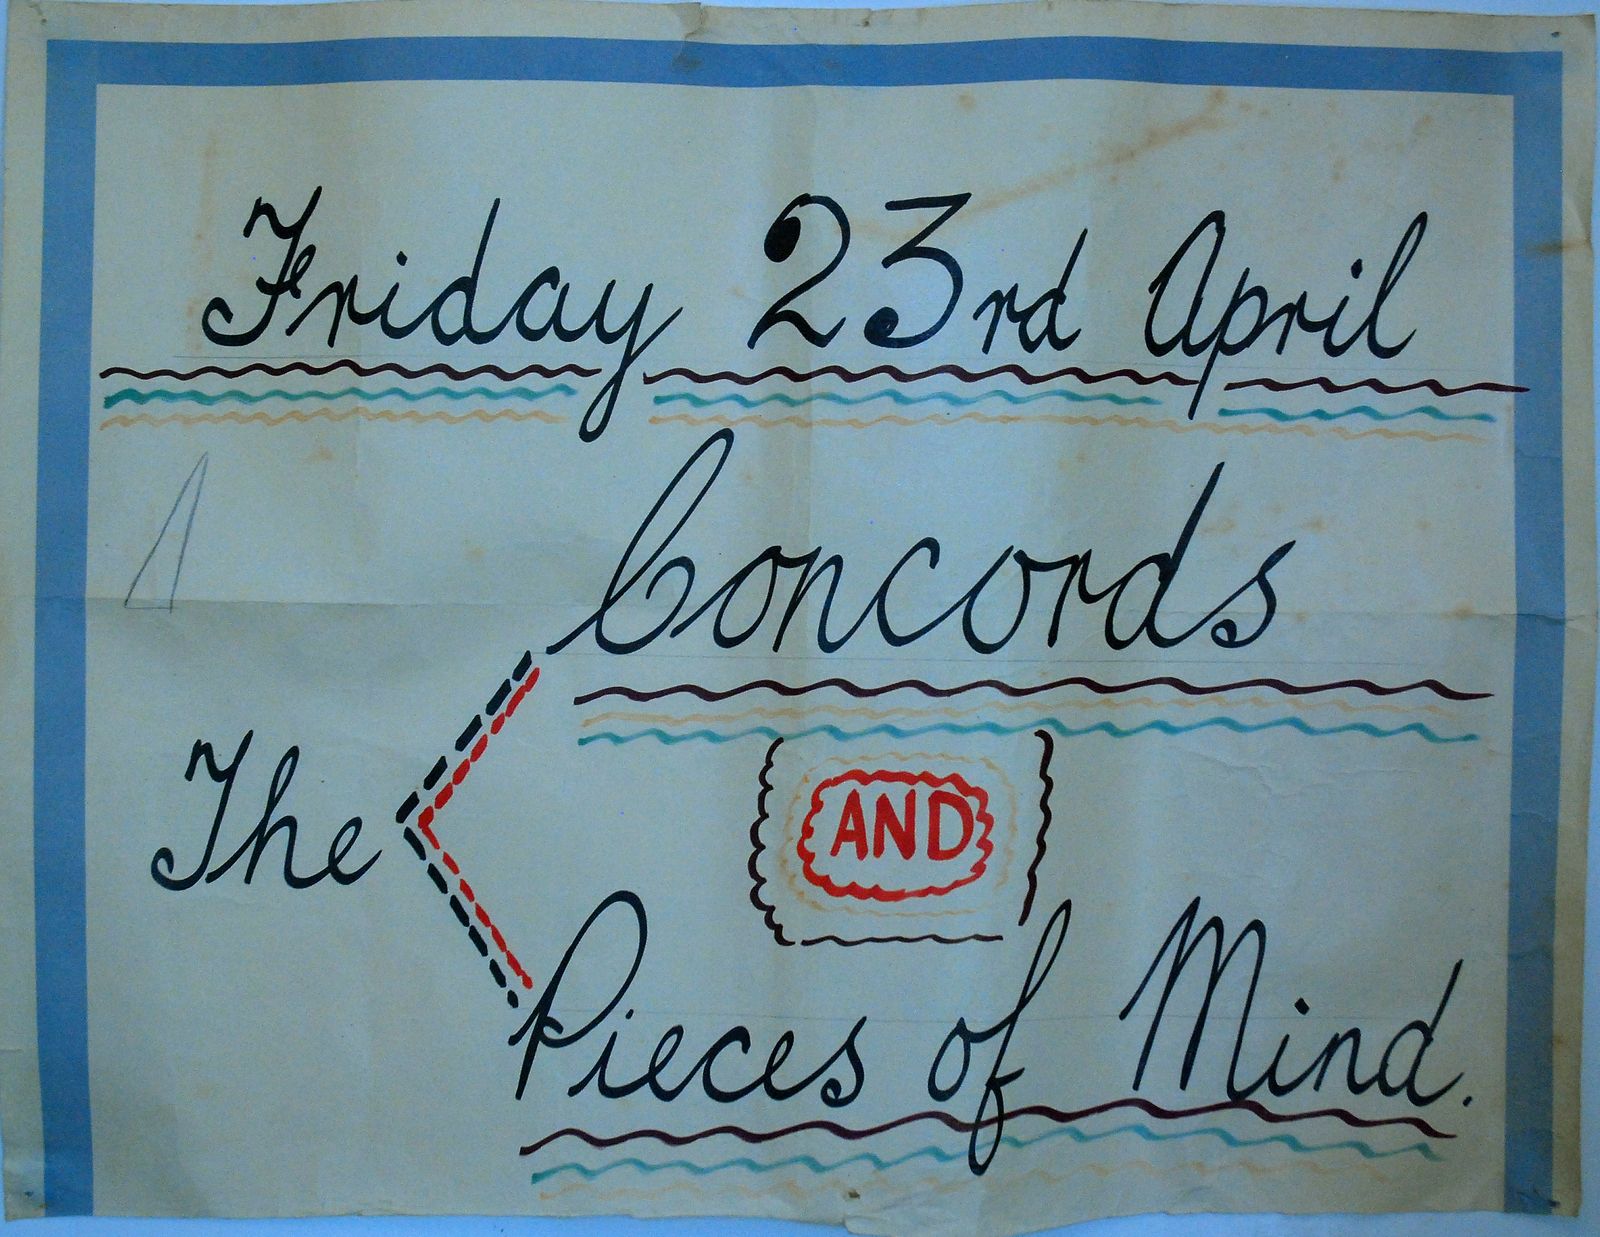 Friday 23rd April
Concords
The
AND
Pieces of Mind.